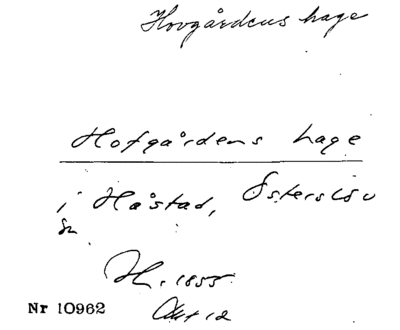 Hovgårdens hage
Hofgårdens hage
i Håstad, Österslöv
sn
H. 1855
Nr 10962
Akt 12